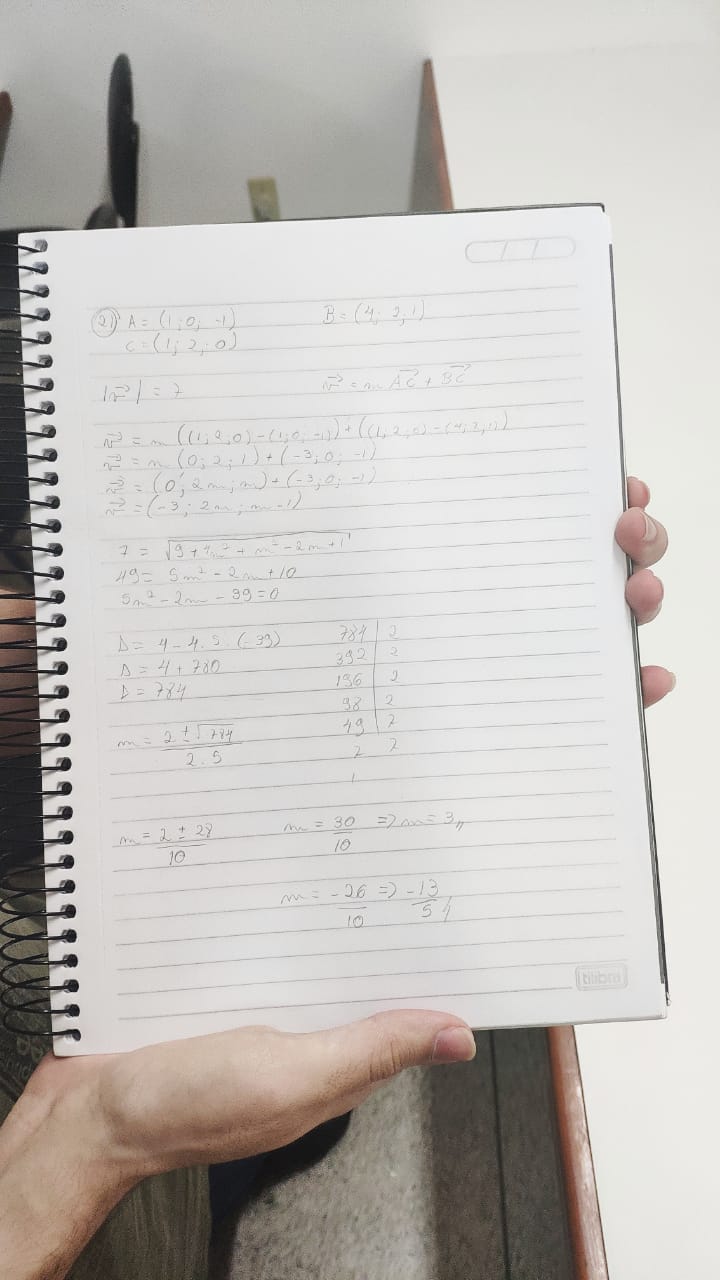 21) A = (1; 0; -1) B = (4; 2; 1)
C = (1; 2; 0)
|v⃗| = 7 v⃗ = m AC⃗ + BC⃗
v⃗ = m ((1; 2; 0) - (1; 0; -1)) + ((1; 2; 0) - (4; 2; 1))
v⃗ = m (0; 2; 1) + (-3; 0; -1)
v⃗ = (0; 2m; m) + (-3; 0; -1)
v⃗ = (-3; 2m; m-1)
7 = √9 + 4m² + m² - 2m + 1
49 = 5m² - 2m + 10
5m² - 2m - 39 = 0
Δ = 4 - 4. 5. (-39) 784 | 2
Δ = 4 + 780 392 | 2
Δ = 784 196 | 2
98 | 2
m = 2 ± √784 / 2. 5 49 | 7
7 7
1
m = 2 ± 28 / 10 m = 30 / 10 => m = 3,,
m = -26 / 10 => -13 / 5 //
tilibra